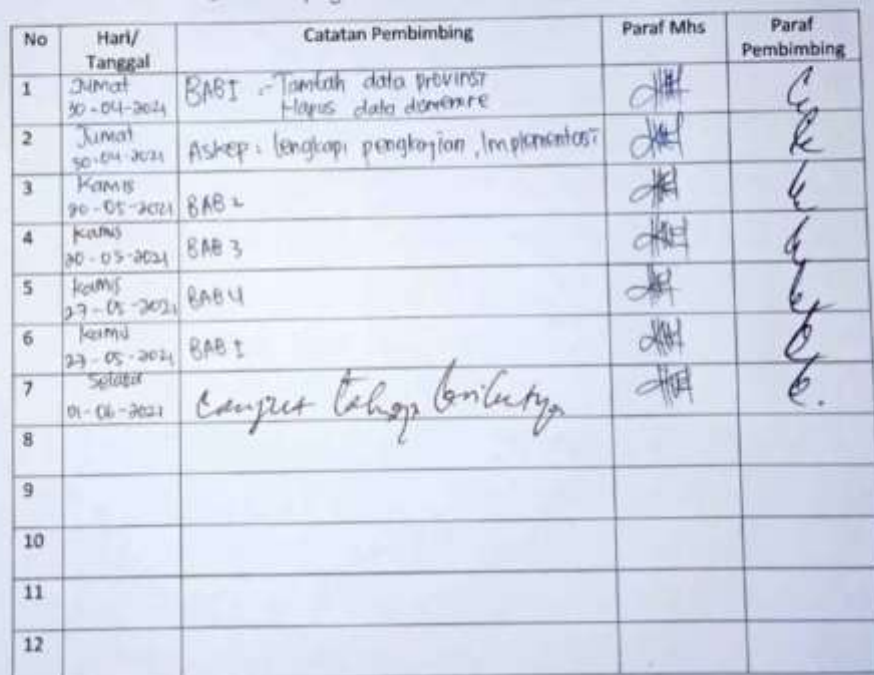 No Hari/ Tanggal Catatan Pembimbing Paraf Mhs Paraf Pembimbing
1 Jumat 30-04-2021 BAB I - Tambah data provinsi
Harus data
2 Jumat 30-04-2021 Askep : lengkapi pengkajian, Implementasi
3 Kamis 20-05-2021 BAB 2
4 Kamis 20-05-2021 BAB 3
5 Kamis 27-05-2021 BAB 4
6 Kamis 27-05-2021 BAB I
7 Selasa 01-06-2021 tahap berikutnya
8
9
10
11
12